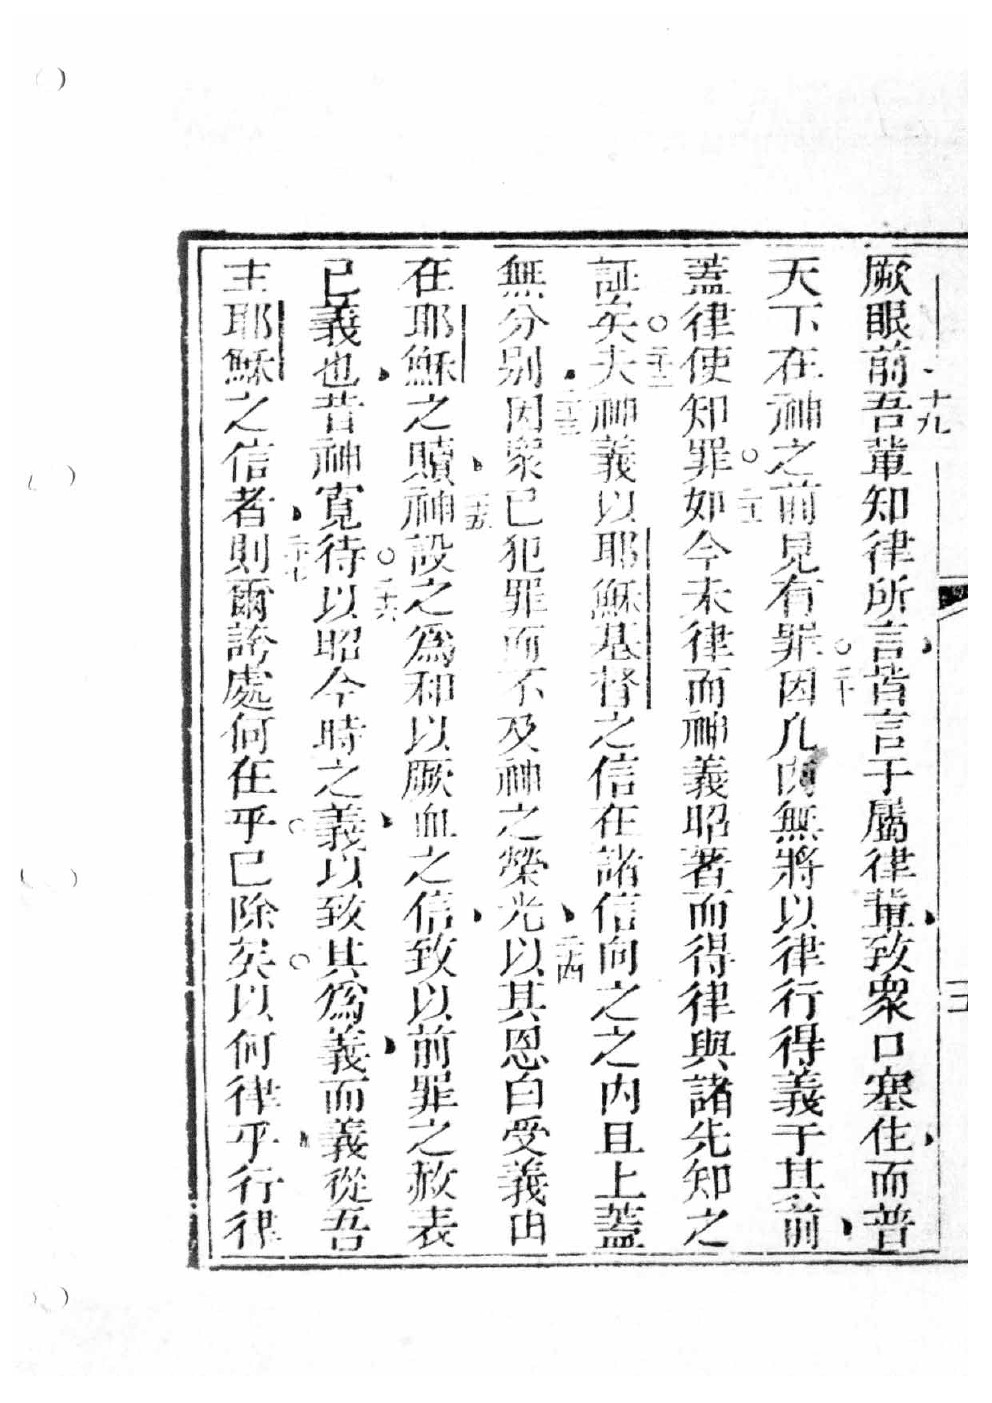 厥眼前吾輩知律所言皆言于屬律輩致衆口塞住而普
十九
天下在神之前見有罪因凡肉無將以律行得義于其前
二十
蓋律使知罪如今未律而神義昭著而得律與諸先知之
二十一
証矣夫神義以耶穌基督之信在諸信向之之內且上蓋
二十二
無分别因衆已犯罪而不及神之榮光以其恩白受義由
二十三
二十四
在耶穌之贖神設之為和以厥血之信致以前罪之赦表
二十五
已義也昔神寬待以昭今時之義以致其為義而義從吾
二十六
主耶穌之信者則爾誇處何在乎已除矣以何律乎行律
二十七